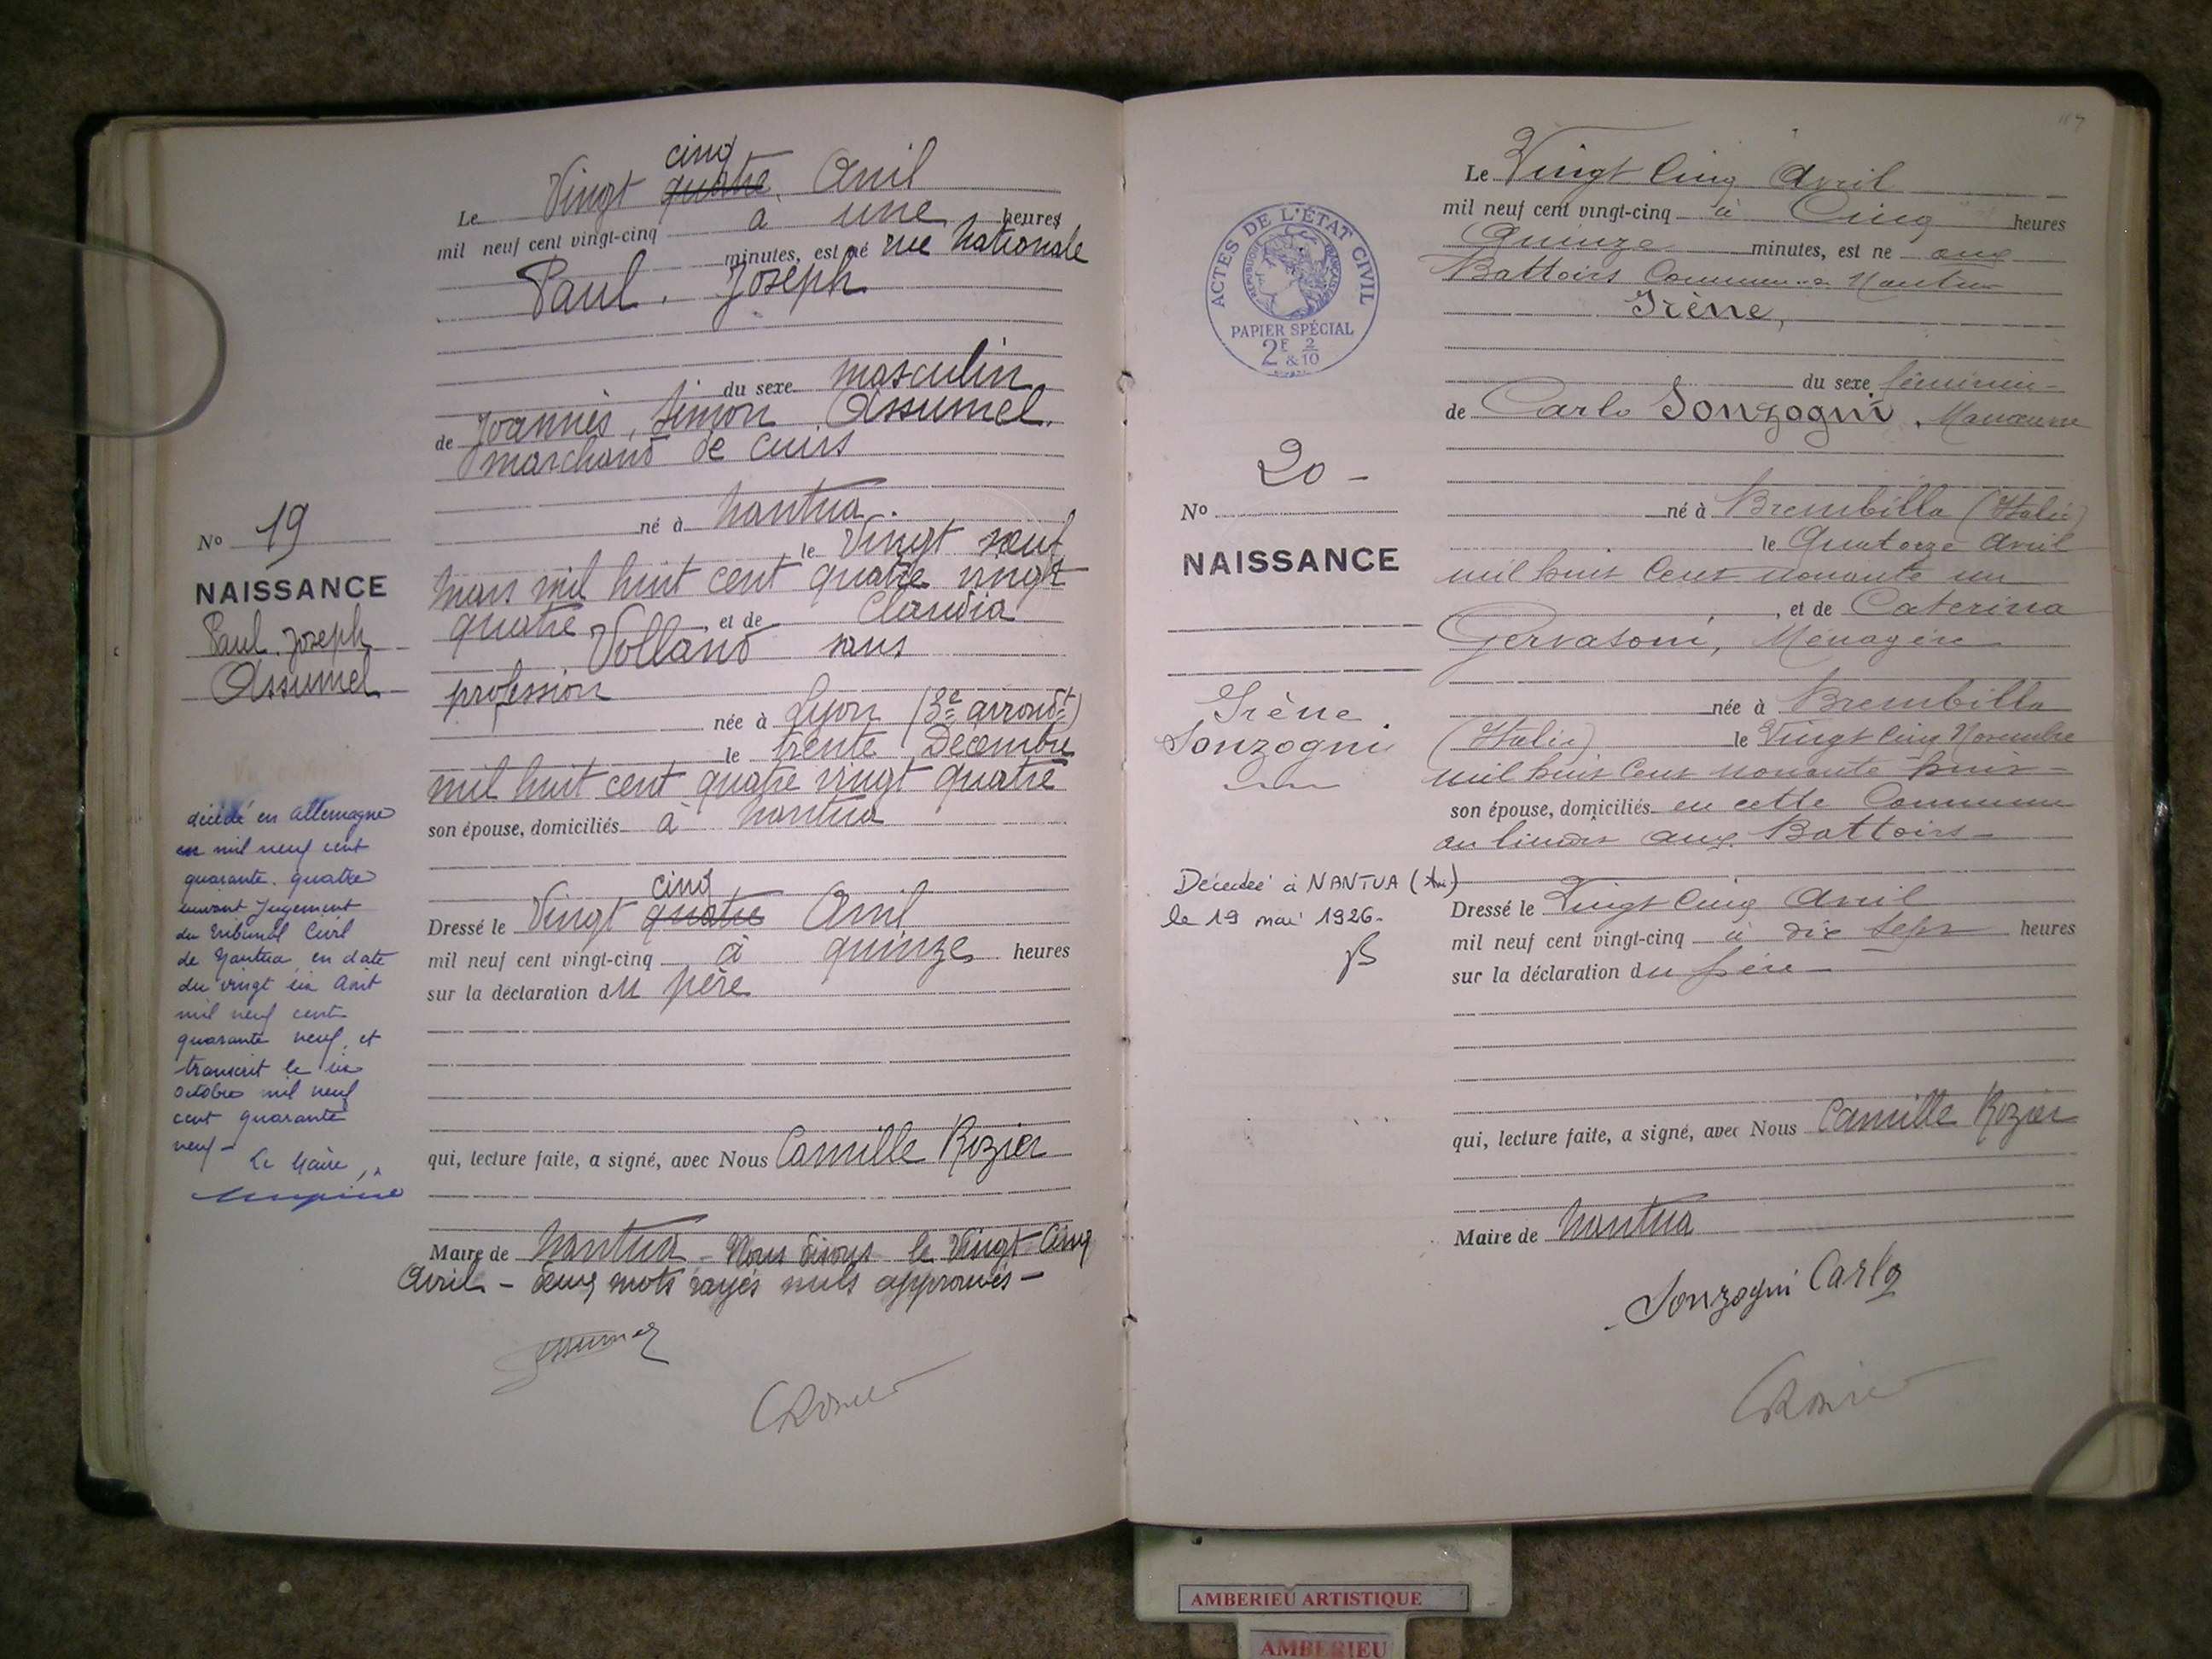 cinq
Le Vingt quatre Avril
mil neuf cent vingt-cinq à une heures
minutes, est né rue Nationale
Paul, Joseph
du sexe masculin
de Joannès, Simon Assumel,
marchand de cuirs
né à Nantua.
le Vingt neuf
Mars mil huit cent quatre vingt
quatre, et de Claudia
Volland sans
profession
née à Lyon (3e arrondt)
le trente Décembre
mil huit cent quatre vingt quatre
son épouse, domiciliés à Nantua
cinq
Dressé le Vingt quatre Avril
mil neuf cent vingt-cinq à quinze heures
sur la déclaration du père
qui, lecture faite, a signé, avec Nous Camille Rozier
Maire de Nantua - Nous disons le Vingt Cinq
Avril - deux mots rayés nuls approuvés -
Assumel
CRozier
No 19
NAISSANCE
Paul, Joseph
Assumel
décédé en Allemagne
en mil neuf cent
quarante quatre
suivant Jugement
du Tribunal Civil
de Nantua en date
du vingt six Août
mil neuf cent
quarante neuf et
transcrit le six
octobre mil neuf
cent quarante
neuf -
Le Maire,
187
Le Vingt Cinq Avril
mil neuf cent vingt-cinq à Cinq heures
Quinze minutes, est né aux
Battoirs Commune Nantua
Irène,
du sexe féminin -
de Carlo Sonzogni, Manœuvre
né à Brembilla (Italie)
le Quatorze Avril
mil huit Cent nonante un
, et de Caterina
Gervasoni, Ménagère
née à Brembilla
(Italie) le Vingt Cinq Novembre
mil huit Cent nonante huit -
son épouse, domiciliés en cette Commune
au lieudit aux Battoirs -
Dressé le Vingt Cinq Avril
mil neuf cent vingt-cinq à dix Sept heures
sur la déclaration du père -
qui, lecture faite, a signé, avec Nous Camille Rozier
Maire de Nantua
Sonzogni Carlo
CRozier
ACTES DE L'ÉTAT CIVIL
RÉPUBLIQUE FRANÇAISE
PAPIER SPÉCIAL
2F & 2/10
No 20 -
NAISSANCE
Irène
Sonzogni
Décédée à NANTUA (Ain)
le 19 mai 1926.
AMBERIEU ARTISTIQUE
AMBERIEU